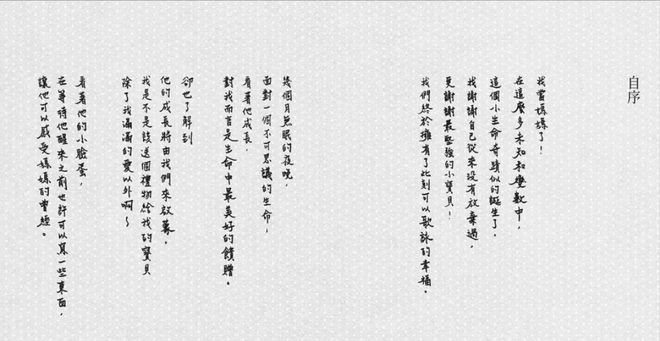 自序
我當媽媽了！
在這麼多未知和變數中，
這個小生命奇蹟似的誕生了。
我謝謝自己從來沒有放棄過，
更謝謝最堅強的小寶貝！
我們終於擁有了此刻可以歌詠的幸福。
幾個月無眠的夜晚，
面對一個不可思議的生命，
看著他成長，
對我而言是生命中最美好的饋贈。
卻也了解到
他的成長將由我們來啟幕，
我是不是該送個禮物給我的寶貝
除了我滿滿的愛以外啊～
看著他的小臉蛋，
在等待他醒來之前也許可以寫一些東西，
讓他可以感受媽媽的曾經。